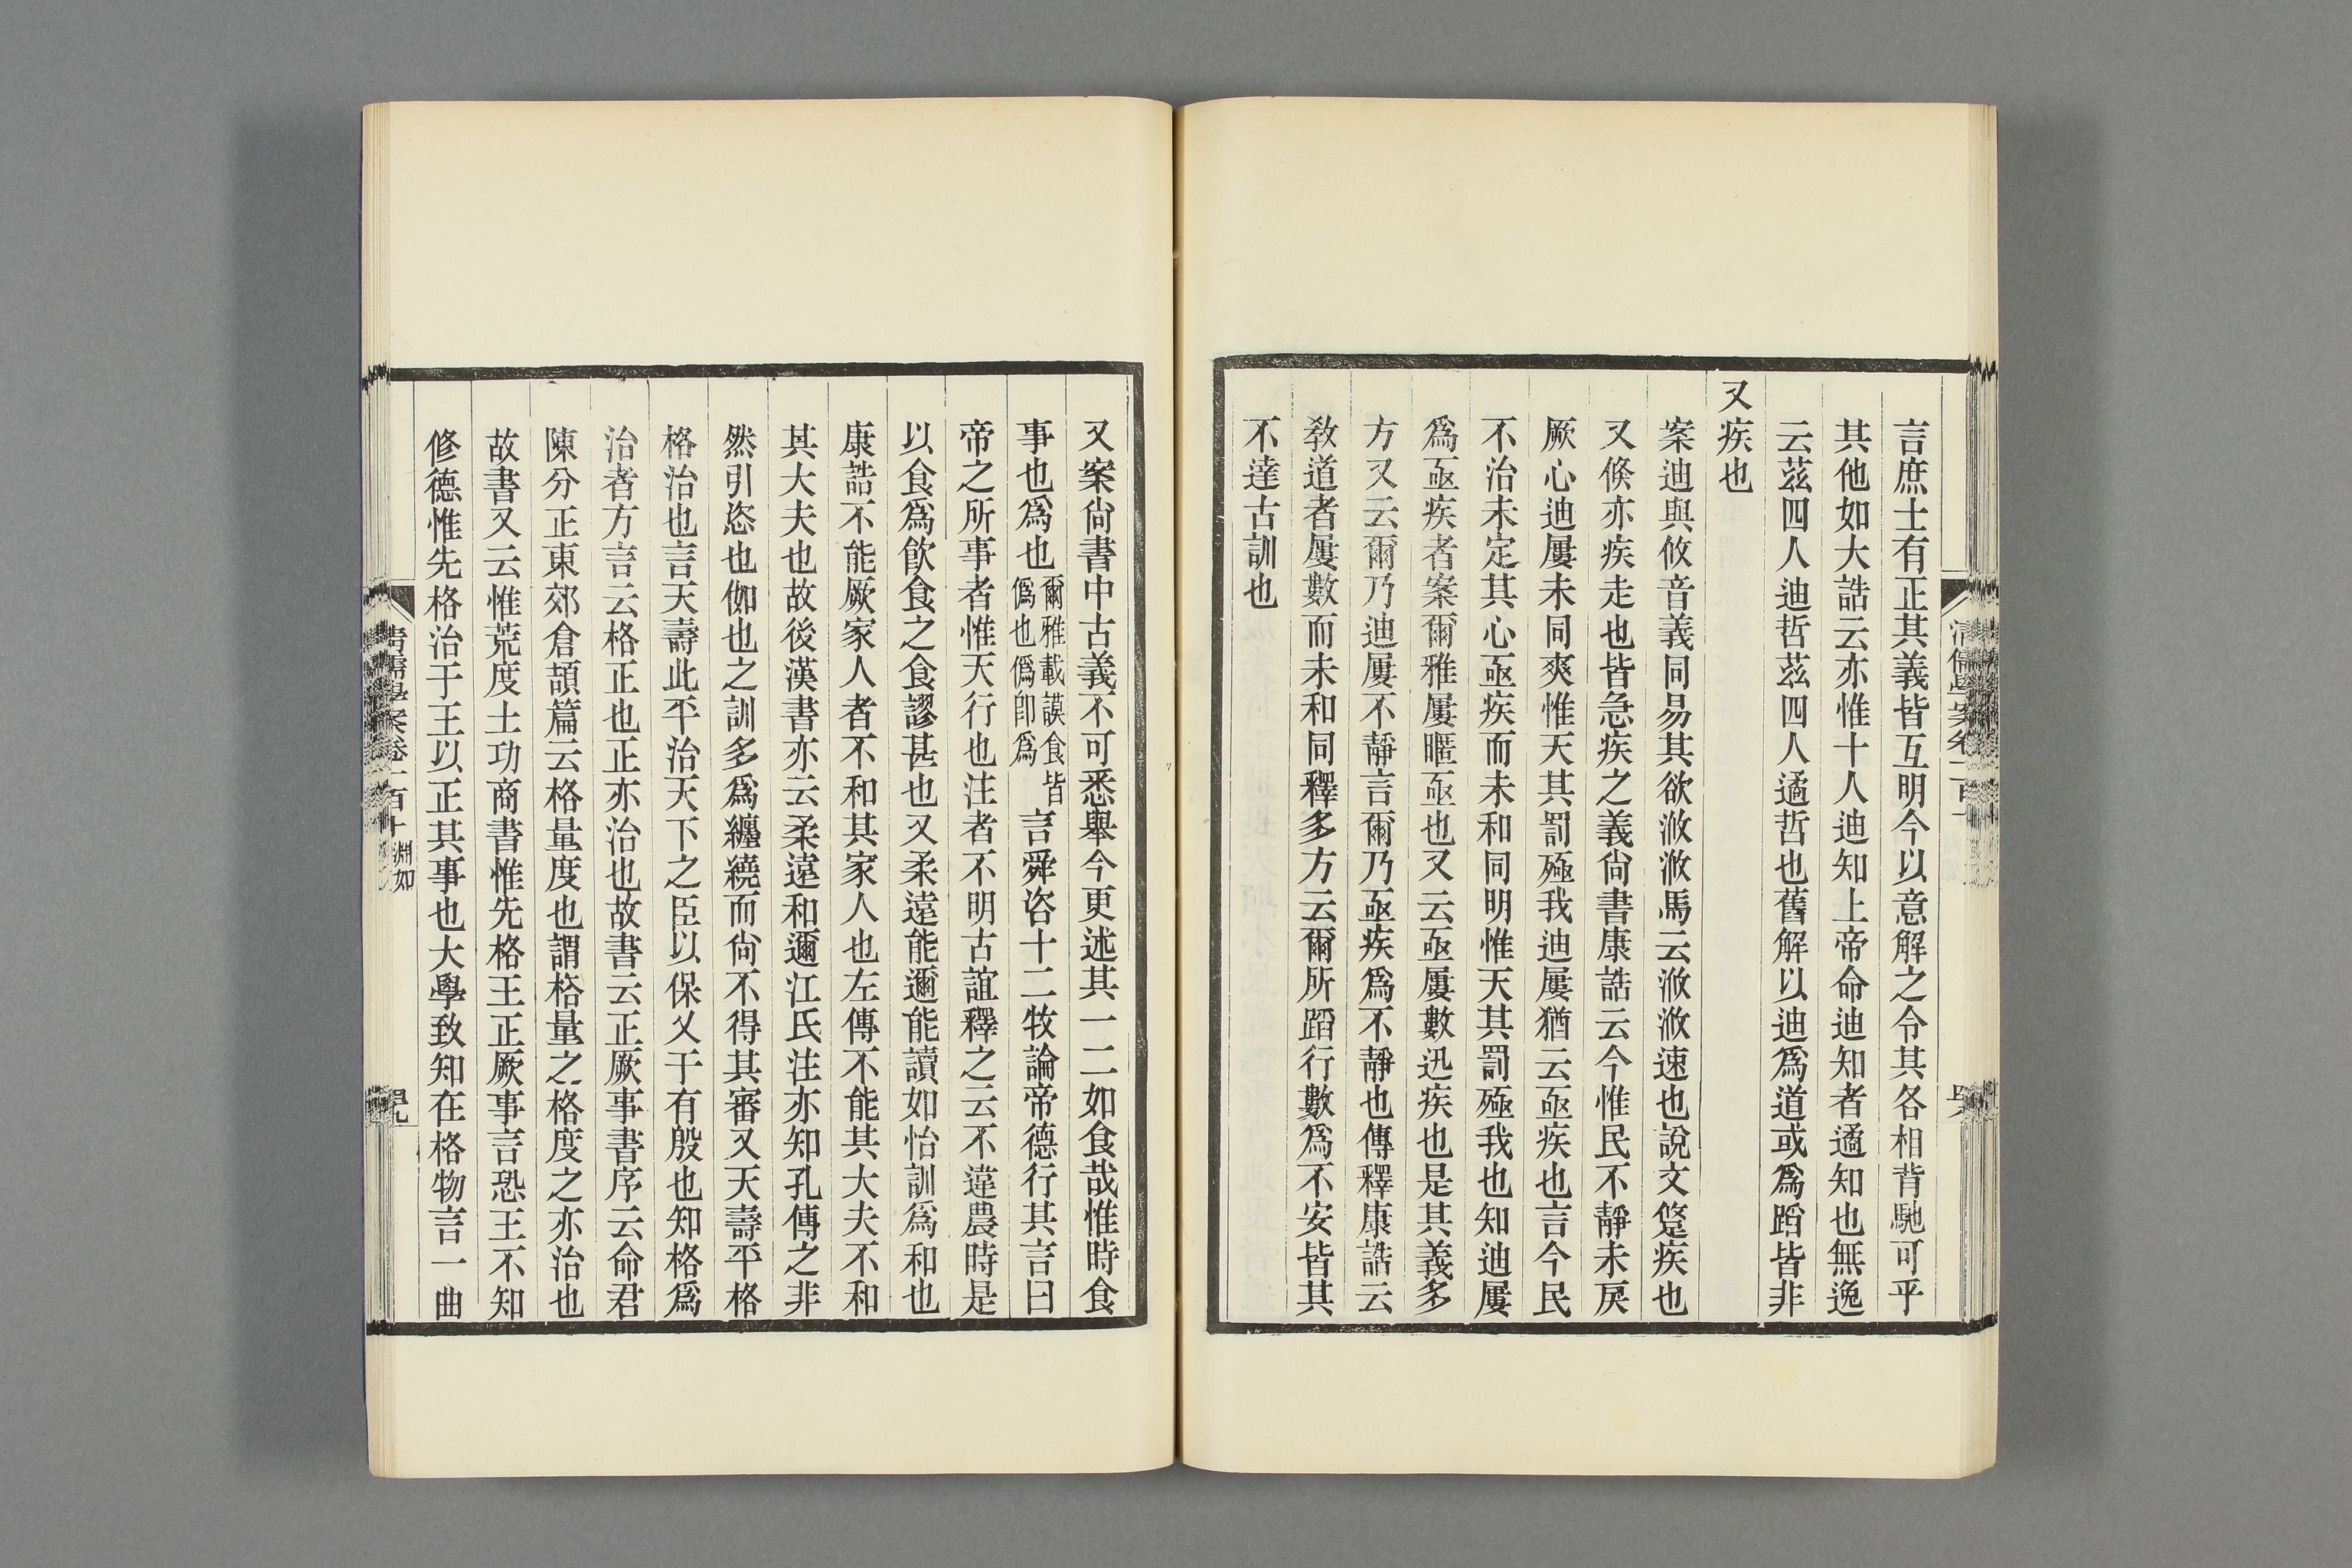 言庶士有正其義皆互明今以意解之令其各相背馳可乎
其他如大誥云亦惟十人迪知上帝命迪知者遹知也無逸
云茲四人迪哲茲四人遹哲也舊解以迪爲道或爲蹈皆非
又疾也
案迪與攸音義同易其欲浟浟馬云浟浟速也說文筵疾也
又倏亦疾走也皆急疾之義尙書康誥云今惟民不靜未戾
厥心迪屢未同爽惟天其罰殛我迪屢猶云亟疾也言今民
不治未定其心亟疾而未和同明惟天其罰殛我也知迪屢
爲亟疾者案爾雅屢暱亟也又云亟屢數迅疾也是其義多
方又云爾乃迪屢不靜言爾乃亟疾爲不靜也傳釋康誥云
敎道者屢數而未和同釋多方云爾所蹈行數爲不安皆其
不達古訓也
又案尙書中古義不可悉舉今更述其一二如食哉惟時食
事也爲也爾雅載謨食皆僞也僞卽爲言舜咨十二牧論帝德行其言曰
帝之所事者惟天行也注者不明古誼釋之云不違農時是
以食爲飮食之食謬甚也又柔遠能邇能讀如怡訓爲和也
康誥不能厥家人者不和其家人也左傳不能其大夫不和
其大夫也故後漢書亦云柔遠和邇江氏注亦知孔傳之非
然引恣也伽也之訓多爲纏繞而尙不得其審又天壽平格
格治也言天壽此平治天下之臣以保乂于有殷也知格爲
治者方言云格正也正亦治也故書云正厥事書序云命君
陳分正東郊倉頡篇云格量度也謂格量之格度之亦治也
故書又云惟荒度土功商書惟先格王正厥事言恐王不知
修德惟先格治于王以正其事也大學致知在格物言一曲
清儒學案卷一百十
淵如